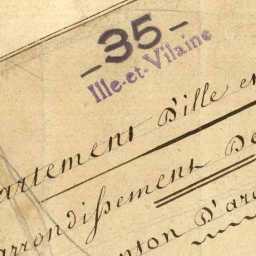 - 35 -
Ille-et-Vilaine
artement D'ille e
arrondissement De
nton D'arg